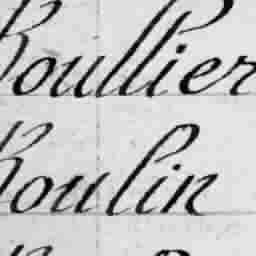 Roullier
Roulin